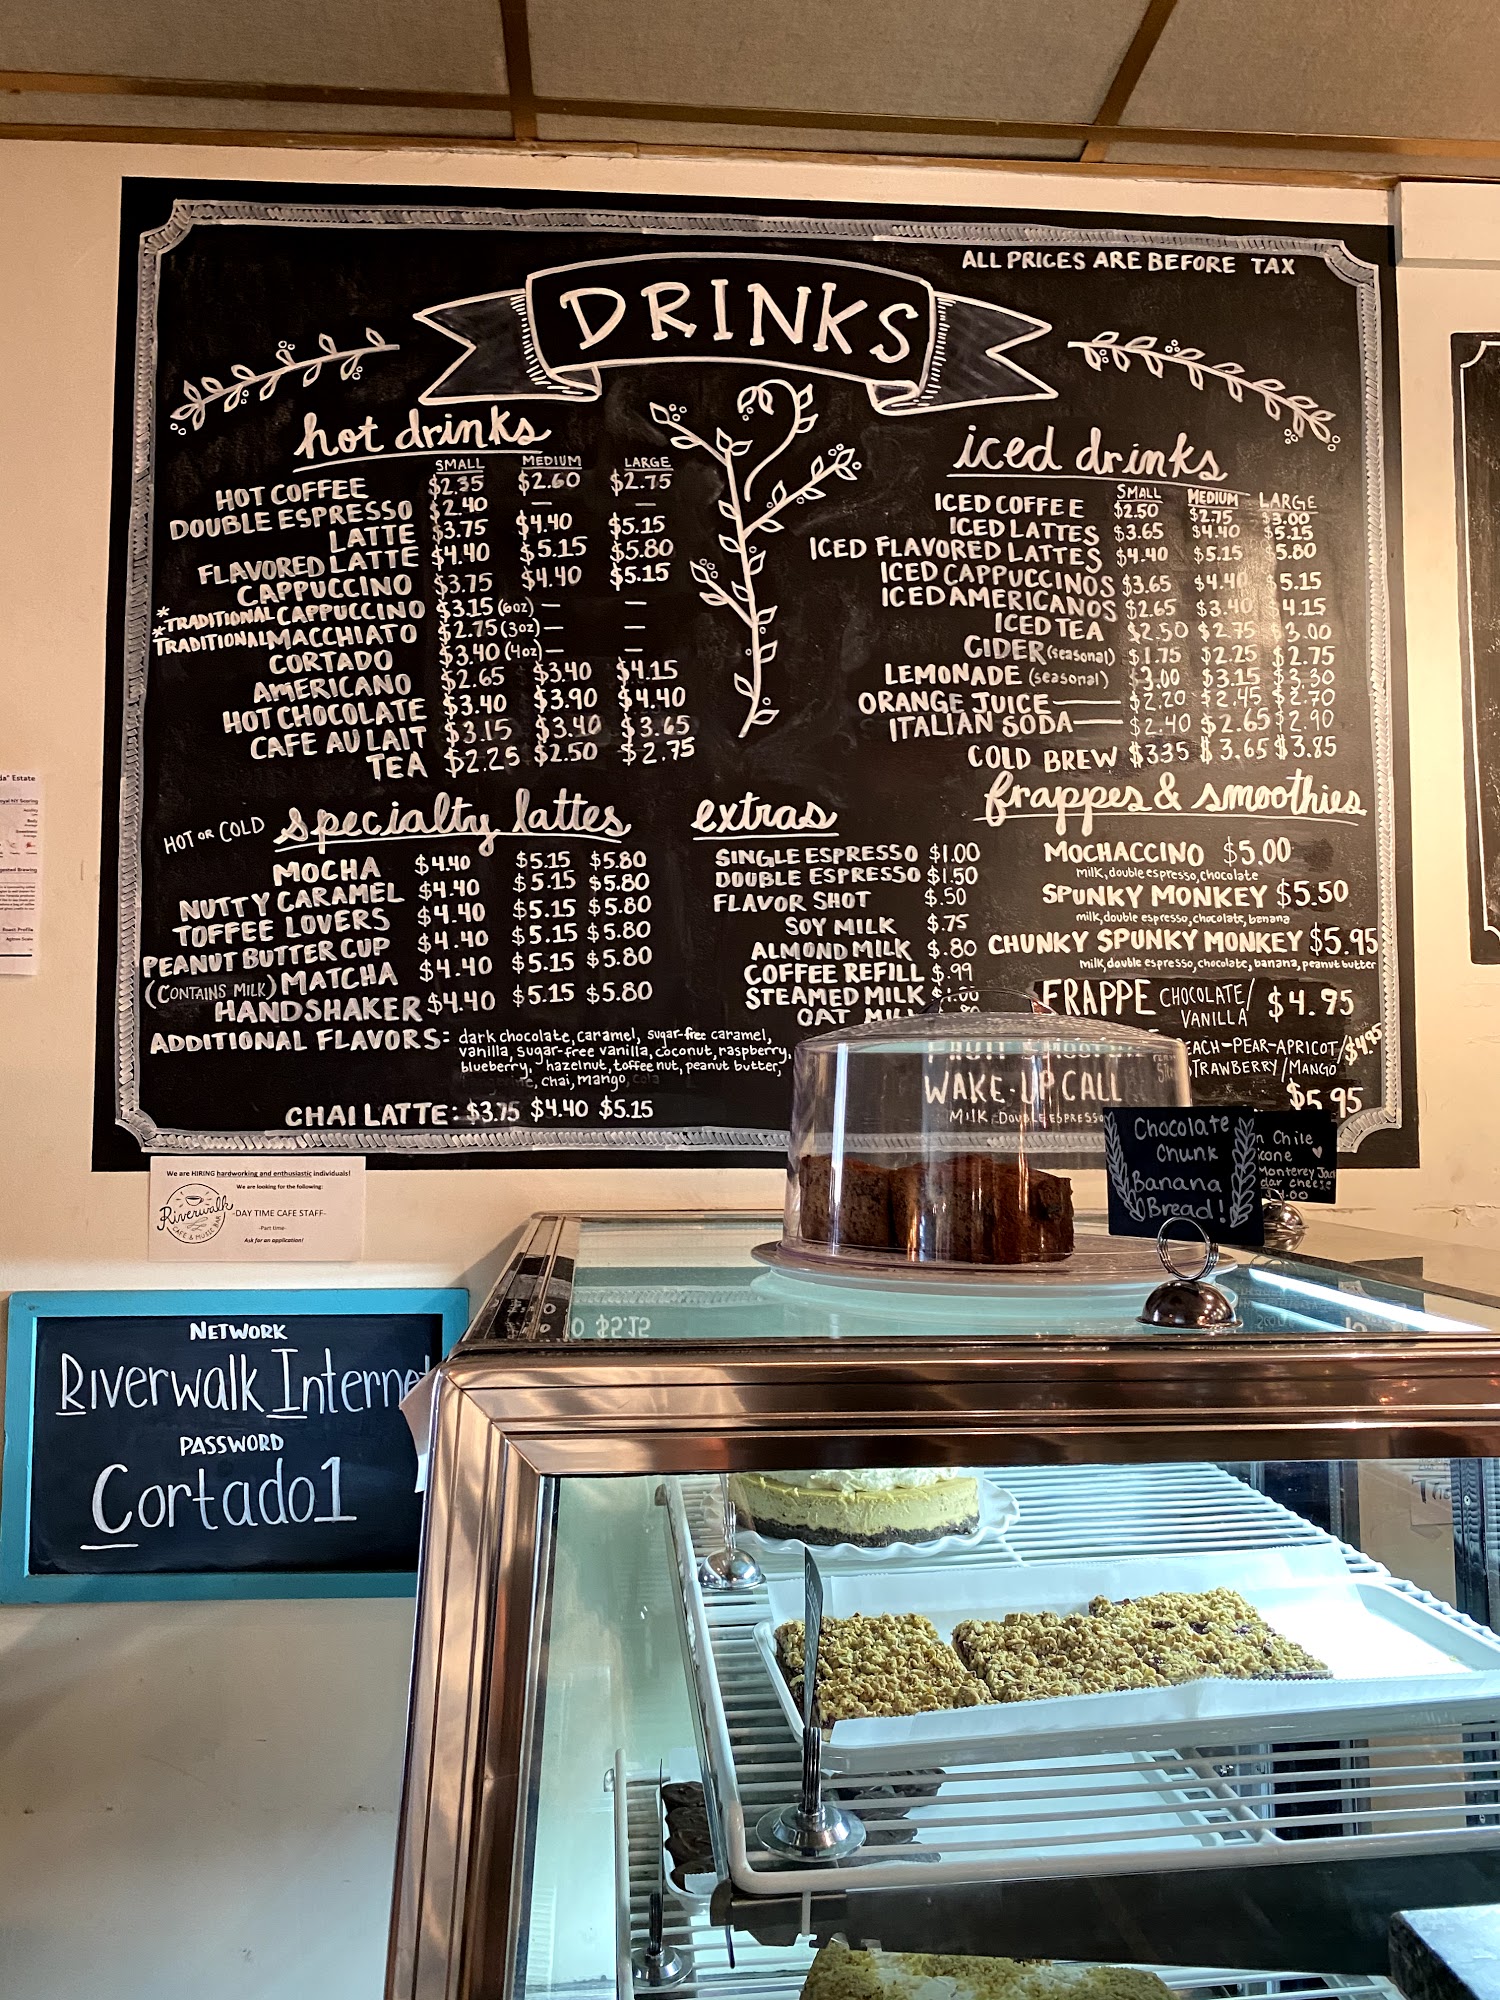 ALL PRICES ARE BEFORE TAX
DRINKS
hot drinks
SMALL MEDIUM LARGE
HOT COFFEE $2.35 $2.60 $2.75
DOUBLE ESPRESSO $2.40 — —
LATTE $3.75 $4.40 $5.15
FLAVORED LATTE $4.40 $5.15 $5.80
CAPPUCCINO $3.75 $4.40 $5.15
*TRADITIONAL CAPPUCCINO $3.15 (6oz) — —
*TRADITIONAL MACCHIATO $2.75 (3oz) — —
CORTADO $3.40 (4oz) — —
AMERICANO $2.65 $3.40 $4.15
HOT CHOCOLATE $3.40 $3.90 $4.40
CAFE AU LAIT $3.15 $3.40 $3.65
TEA $2.25 $2.50 $2.75
iced drinks
SMALL MEDIUM LARGE
ICED COFFEE $2.50 $2.75 $3.00
ICED LATTES $3.65 $4.40 $5.15
ICED FLAVORED LATTES $4.40 $5.15 $5.80
ICED CAPPUCCINOS $3.65 $4.40 $5.15
ICED AMERICANOS $2.65 $3.40 $4.15
ICED TEA $2.50 $2.75 $3.00
CIDER (seasonal) $1.75 $2.25 $2.75
LEMONADE (seasonal) $3.00 $3.15 $3.30
ORANGE JUICE — $2.20 $2.45 $2.70
ITALIAN SODA — $2.40 $2.65 $2.90
COLD BREW $335 $3.65 $3.85
HOT OR COLD specialty lattes
MOCHA $4.40 $5.15 $5.80
NUTTY CARAMEL $4.40 $5.15 $5.80
TOFFEE LOVERS $4.40 $5.15 $5.80
PEANUT BUTTER CUP $4.40 $5.15 $5.80
(CONTAINS MILK) MATCHA $4.40 $5.15 $5.80
HANDSHAKER $4.40 $5.15 $5.80
ADDITIONAL FLAVORS: dark chocolate, caramel, sugar-free caramel,
vanilla, sugar-free vanilla, coconut, raspberry,
blueberry, hazelnut, toffee nut, peanut butter,
, chai, mango
CHAI LATTE: $3.75 $4.40 $5.15
extras
SINGLE ESPRESSO $1.00
DOUBLE ESPRESSO $1.50
FLAVOR SHOT $.50
SOY MILK $.75
ALMOND MILK $.80
COFFEE REFILL $.99
STEAMED MILK $1.00
OAT MILK .80
frappes & smoothies
MOCHACCINO $5.00
milk, double espresso, chocolate
SPUNKY MONKEY $5.50
milk, double espresso, chocolate, banana
CHUNKY SPUNKY MONKEY $5.95
milk, double espresso, chocolate, banana, peanut butter
FRAPPE CHOCOLATE/ VANILLA $4.95
FRUIT SMOOT
EACH-PEAR-APRICOT/ $4.95
TRAWBERRY/MANGO
WAKE-UP CALL $5.95
MILK, DOUBLE ESPRESSO
Chocolate
Chunk
Banana
Bread!
n Chile
cone
Monterey Jac
dar cheese
We are HIRING hardworking and enthusiastic individuals!
We are looking for the following:
-DAY TIME CAFE STAFF-
-Part time-
Ask for an application!
Riverwalk
CAFE & MUSIC BAR
NETWORK
Riverwalk Internet
PASSWORD
Cortado1
da" Estate
oyal NY Scoring
Acidity
Body
Sweetness
gested Brewing
Roast Profile
Agtron Scale
$5.15